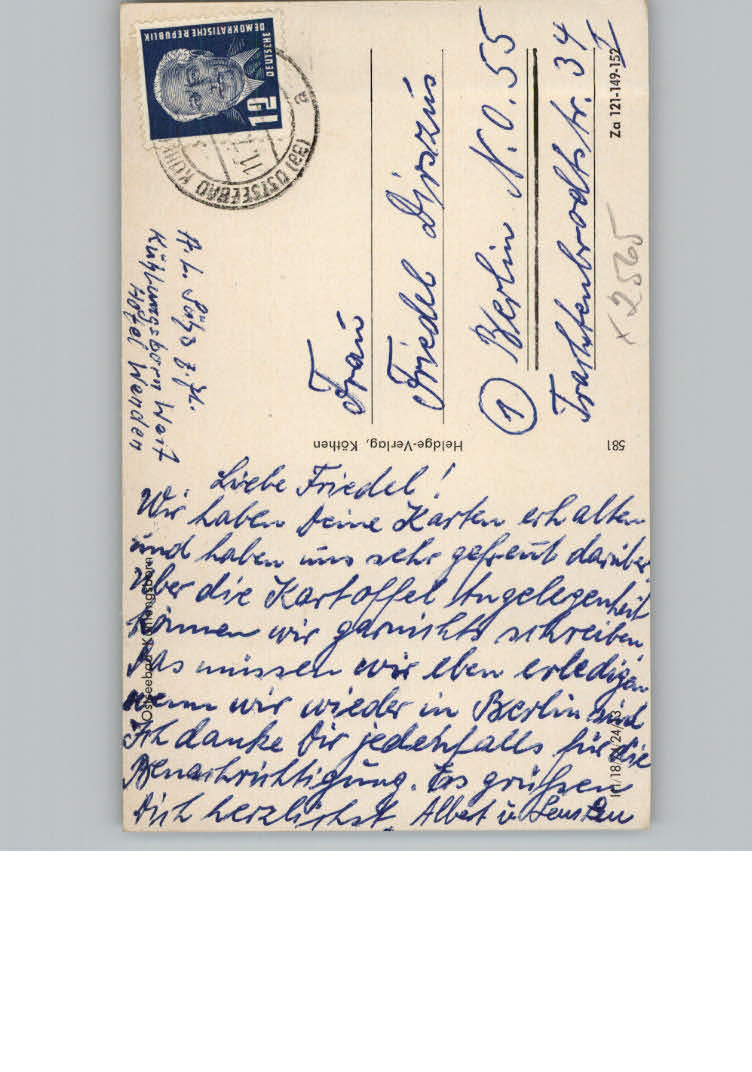 DEUTSCHE
DEMOKRATISCHE REPUBLIK
12
OSTSEEBAD KÜHL
a
A. L. z. Zt.
Kühlungsborn West
Hotel Wenden
Frau
Friedel
① Berlin N.O. 55
Trachtenbrodtstr. 34
I
Za 121-149-152
x 2565
Heldge-Verlag, Köthen
581
Liebe Friedel!
Wir haben Deine Karten erhalten
und haben uns sehr gefreut darüber
Über die Kartoffel Angelegenheit
können wir garnichts schreiben
das müssen wir eben erledigen
wenn wir wieder in Berlin sind
Ich danke Dir jedenfalls für die
Benachrichtigung. Es grüßen
Dich herzlichst Albert u.
Ostseebad Kühlungsborn